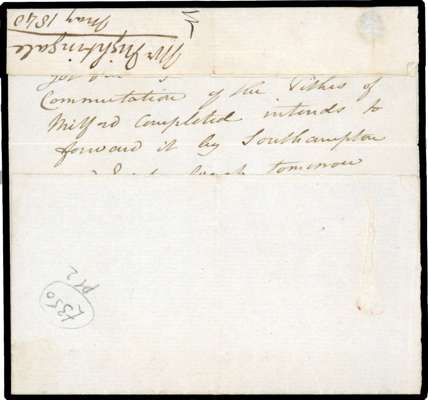 Mr Nightingale
May 1840
Commutation of the Tithes of
Milford Completed intends to
forward it by Southampton
coach tomorrow
£350
pt 2